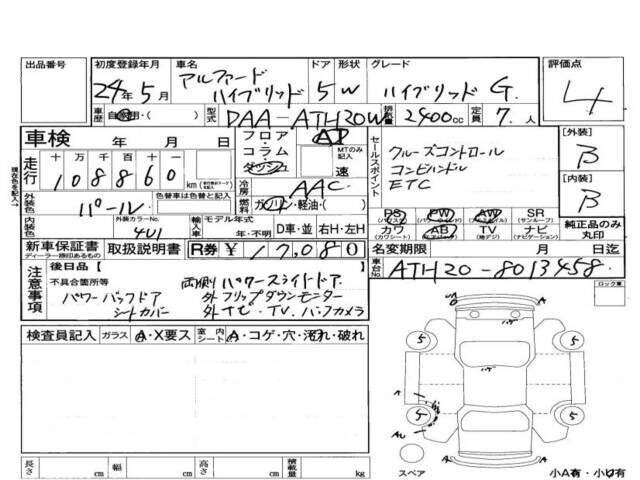 出品番号 初度登録年月 車名 ドア 形状 グレード 評価点
24年5月 アルファード ハイブリッド 5 W ハイブリッド G. 4
車歴 自家用・( ) 型式 DAA-ATH20W 排気量 2400cc 定員 7.人
車検 年 月 日 フロア・コラム・ダッシュ AT MTのみ記入 速
走行 十万千百十一 108860 km
冷房 AAC
外装色 パール 色替車は色替と記入 燃料 ガソリン・軽油・( )
内装色 外装カラーNo. 4U1 輸入車 モデル年式 年・不明 D車・並 右H・左H
セールスポイント
クルーズコントロール
コンビハンドル
ETC
PS PW AW SR
(パワステ) (パワーウインド) (アルミホイル) (サンルーフ)
カワ AB TV ナビ
(カワシート) (エアバック) (地デジ) (ナビゲーション)
[外装]
B
[内装]
B
純正品のみ
丸印
新車保証書 取扱説明書 R券 ¥17,080 名変期限 月 日迄
ディーラー捺印あるもの
車台No. ATH20-8013458
注意事項 後日品[ ]
不具合箇所等 両側パワースライドドア
パワーバックドア 外フリップダウンモニター
シートカバー 外ナビ・TV・バックカメラ
ロック車
検査員記入 ガラス A・X要ス 室内シート A・コゲ・穴・汚れ・破れ
長さ cm 幅 cm 高さ cm 積載量 kg
UA
A
ハゲ
5
5
ハゲ
A
A
5
5
AU
スペア
小A有・小U有
現在色を記入→